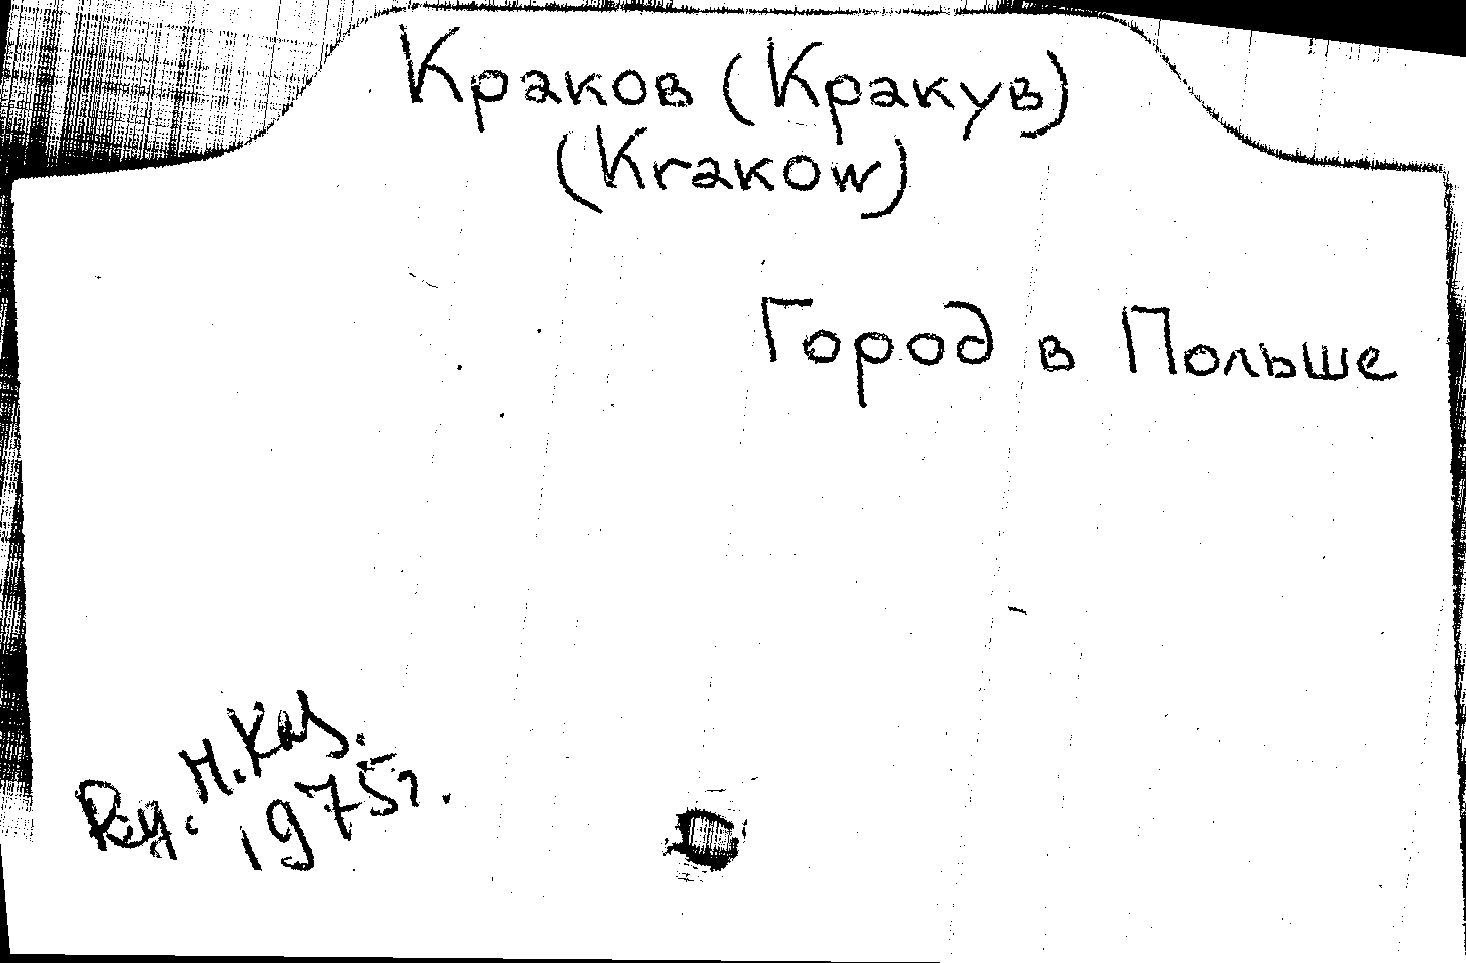 Краков (Кракув)
(Krakow)
Город в Польше
Ред. Н. Каз.
1975 г.